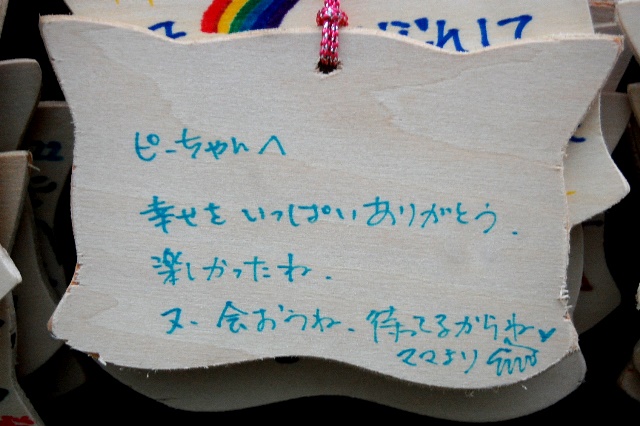 ピーちゃんへ
幸せをいっぱいありがとう.
楽しかったね.
又、会おうね、待ってるからね♥
ママより